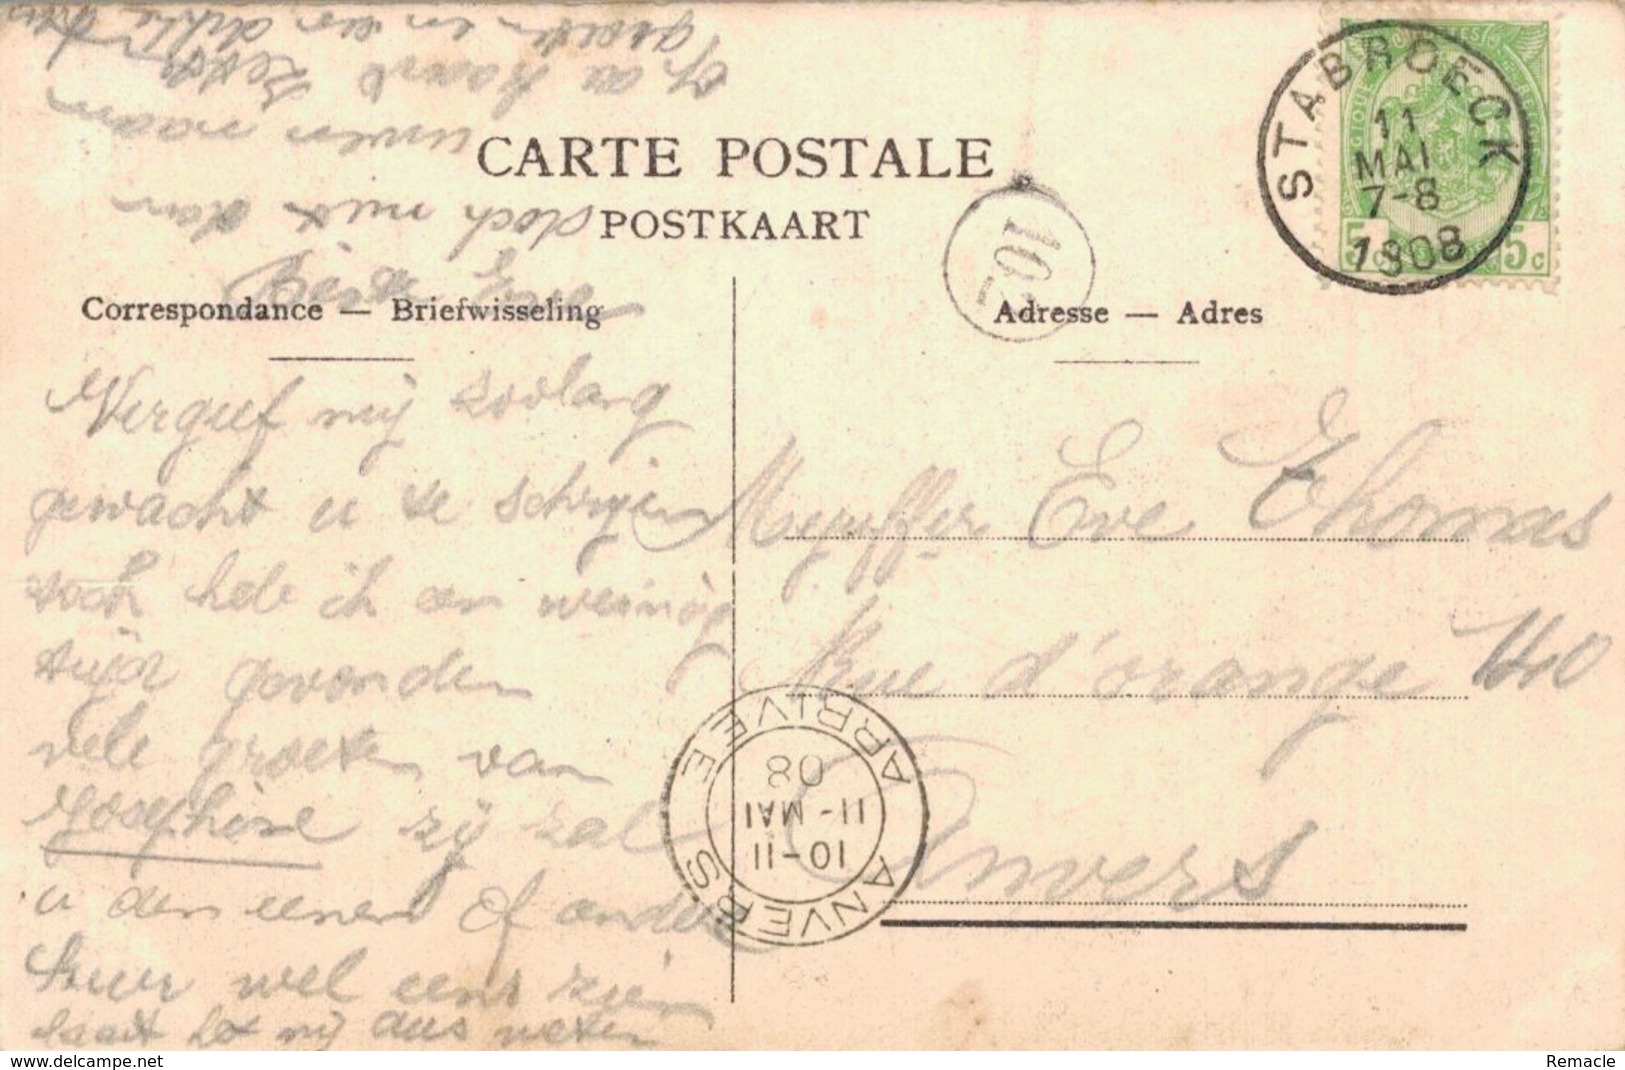 CARTE POSTALE
POSTKAART
Correspondance — Briefwisseling
Adresse — Adres
STABROECK
11
MAI
7-8
1908
5c 5c
102
Vergeef mij zoolang
gewacht u te schrijven
hebe ik een weinig
tijd gevonden
vele groeten van
Josephine zij zal
u den eenen of ander
keer wel eens zien
laat het mij dus weten
doch niet
uwen naam
op de kaart
groeten en
Mejuffer Eve Thomas
Rue d'orange 40
Anvers
ANVERS ARRIVEE
10-11
11-MAI
08
www.delcampe.net
Remacle